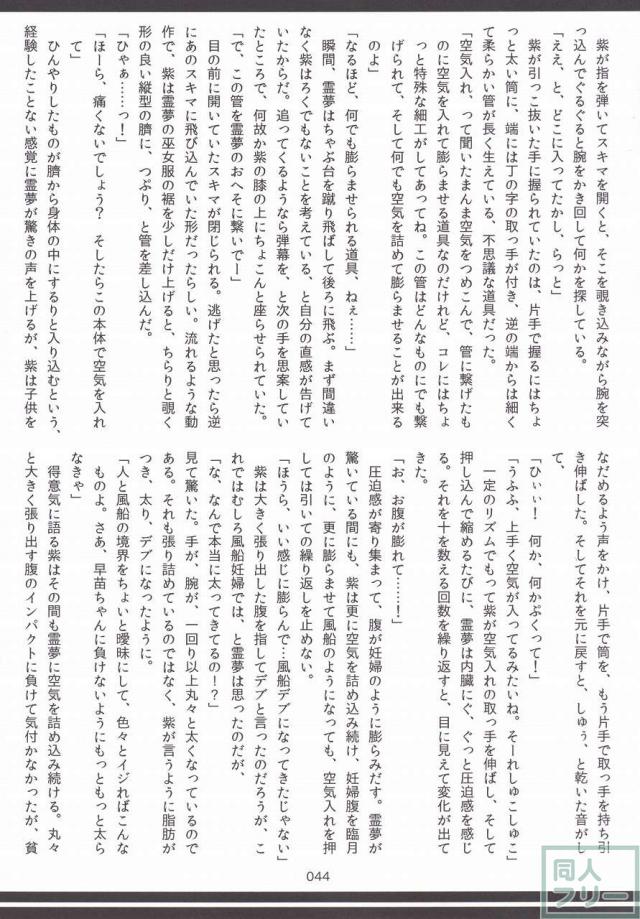 紫が指を弾いてスキマを開くと、そこを覗き込みながら腕を突
っ込んでぐるぐると腕をかき回して何かを探している。
「ええ、と、どこに入ってたかし、らっと」
　紫が引っこ抜いた手に握られていたのは、片手で握るにはちょ
っと太い筒に、端には丁の字の取っ手が付き、逆の端からは細く
て柔らかい管が長く生えている、不思議な道具だった。
「空気入れ、って聞いたまんま空気をつめこんで、管に繋げたも
のに空気を入れて膨らませる道具なのだけれど、コレにはちょ
っと特殊な細工がしてあってね。この管はどんなものにでも繋
げられて、そして何でも空気を詰めて膨らませることが出来る
のよ」
「なるほど、何でも膨らませられる道具、ねぇ……」
　瞬間、霊夢はちゃぶ台を蹴り飛ばして後ろに飛ぶ。まず間違い
なく紫はろくでもないことを考えている、と自分の直感が告げて
いたからだ。追ってくるようなら弾幕を、と次の手を思案してい
たところで、何故か紫の膝の上にちょこんと座らせられていた。
「で、この管を霊夢のおへそに繋いでー」
　目の前に開いていたスキマが閉じられる。逃げたと思ったら逆
にあのスキマに飛び込んでいた形だったらしい。流れるような動
作で、紫は霊夢の巫女服の裾を少しだけ上げると、ちらりと覗く
形の良い縦型の臍に、つぷり、と管を差し込んだ。
「ひゃぁ……っ！」
「ほーら、痛くないでしょう？　そしたらこの本体で空気を入れ
て」
　ひんやりしたものが臍から身体の中にするりと入り込むという、
経験したことない感覚に霊夢が驚きの声を上げるが、紫は子供を
なだめるよう声をかけ、片手で筒を、もう片手で取っ手を持ち引
き伸ばした。そしてそれを元に戻すと、しゅぅ、と乾いた音がし
て、
「ひぃぃ！　何か、何かぷくって！」
「うふふ、上手く空気が入ってるみたいね。そーれしゅこしゅこ」
　一定のリズムでもって紫が空気入れの取っ手を伸ばし、そして
押し込んで縮めるたびに、霊夢は内臓にぐ、ぐっと圧迫感を感じ
る。それを十を数える回数を繰り返すと、目に見えて変化が出て
きた。
「お、お腹が膨れて……！」
　圧迫感が寄り集まって、腹が妊婦のように膨らみだす。霊夢が
驚いている間にも、紫は更に空気を詰め込み続け、妊婦腹を臨月
のように、更に膨らませて風船のようになっても、空気入れを押
しては引いての繰り返しを止めない。
「ほうら、いい感じに膨らんで…風船デブになってきたじゃない」
　紫は大きく張り出した腹を指してデブと言ったのだろうが、こ
れではむしろ風船妊婦では、と霊夢は思ったのだが、
「な、なんで本当に太ってきてるの！？」
　見て驚いた。手が、腕が、一回り以上丸々と太くなっているので
ある。それも張り詰めているのではなく、紫が言うように脂肪が
つき、太り、デブになったように。
「人と風船の境界をちょいと曖昧にして、色々とイジればこんな
ものよ。さあ、早苗ちゃんに負けないようにもっともっと太ら
なきゃ」
　得意気に語る紫はその間も霊夢に空気を詰め込み続ける。丸々
と大きく張り出す腹のインパクトに負けて気付かなかったが、貧
044
同人
フリー